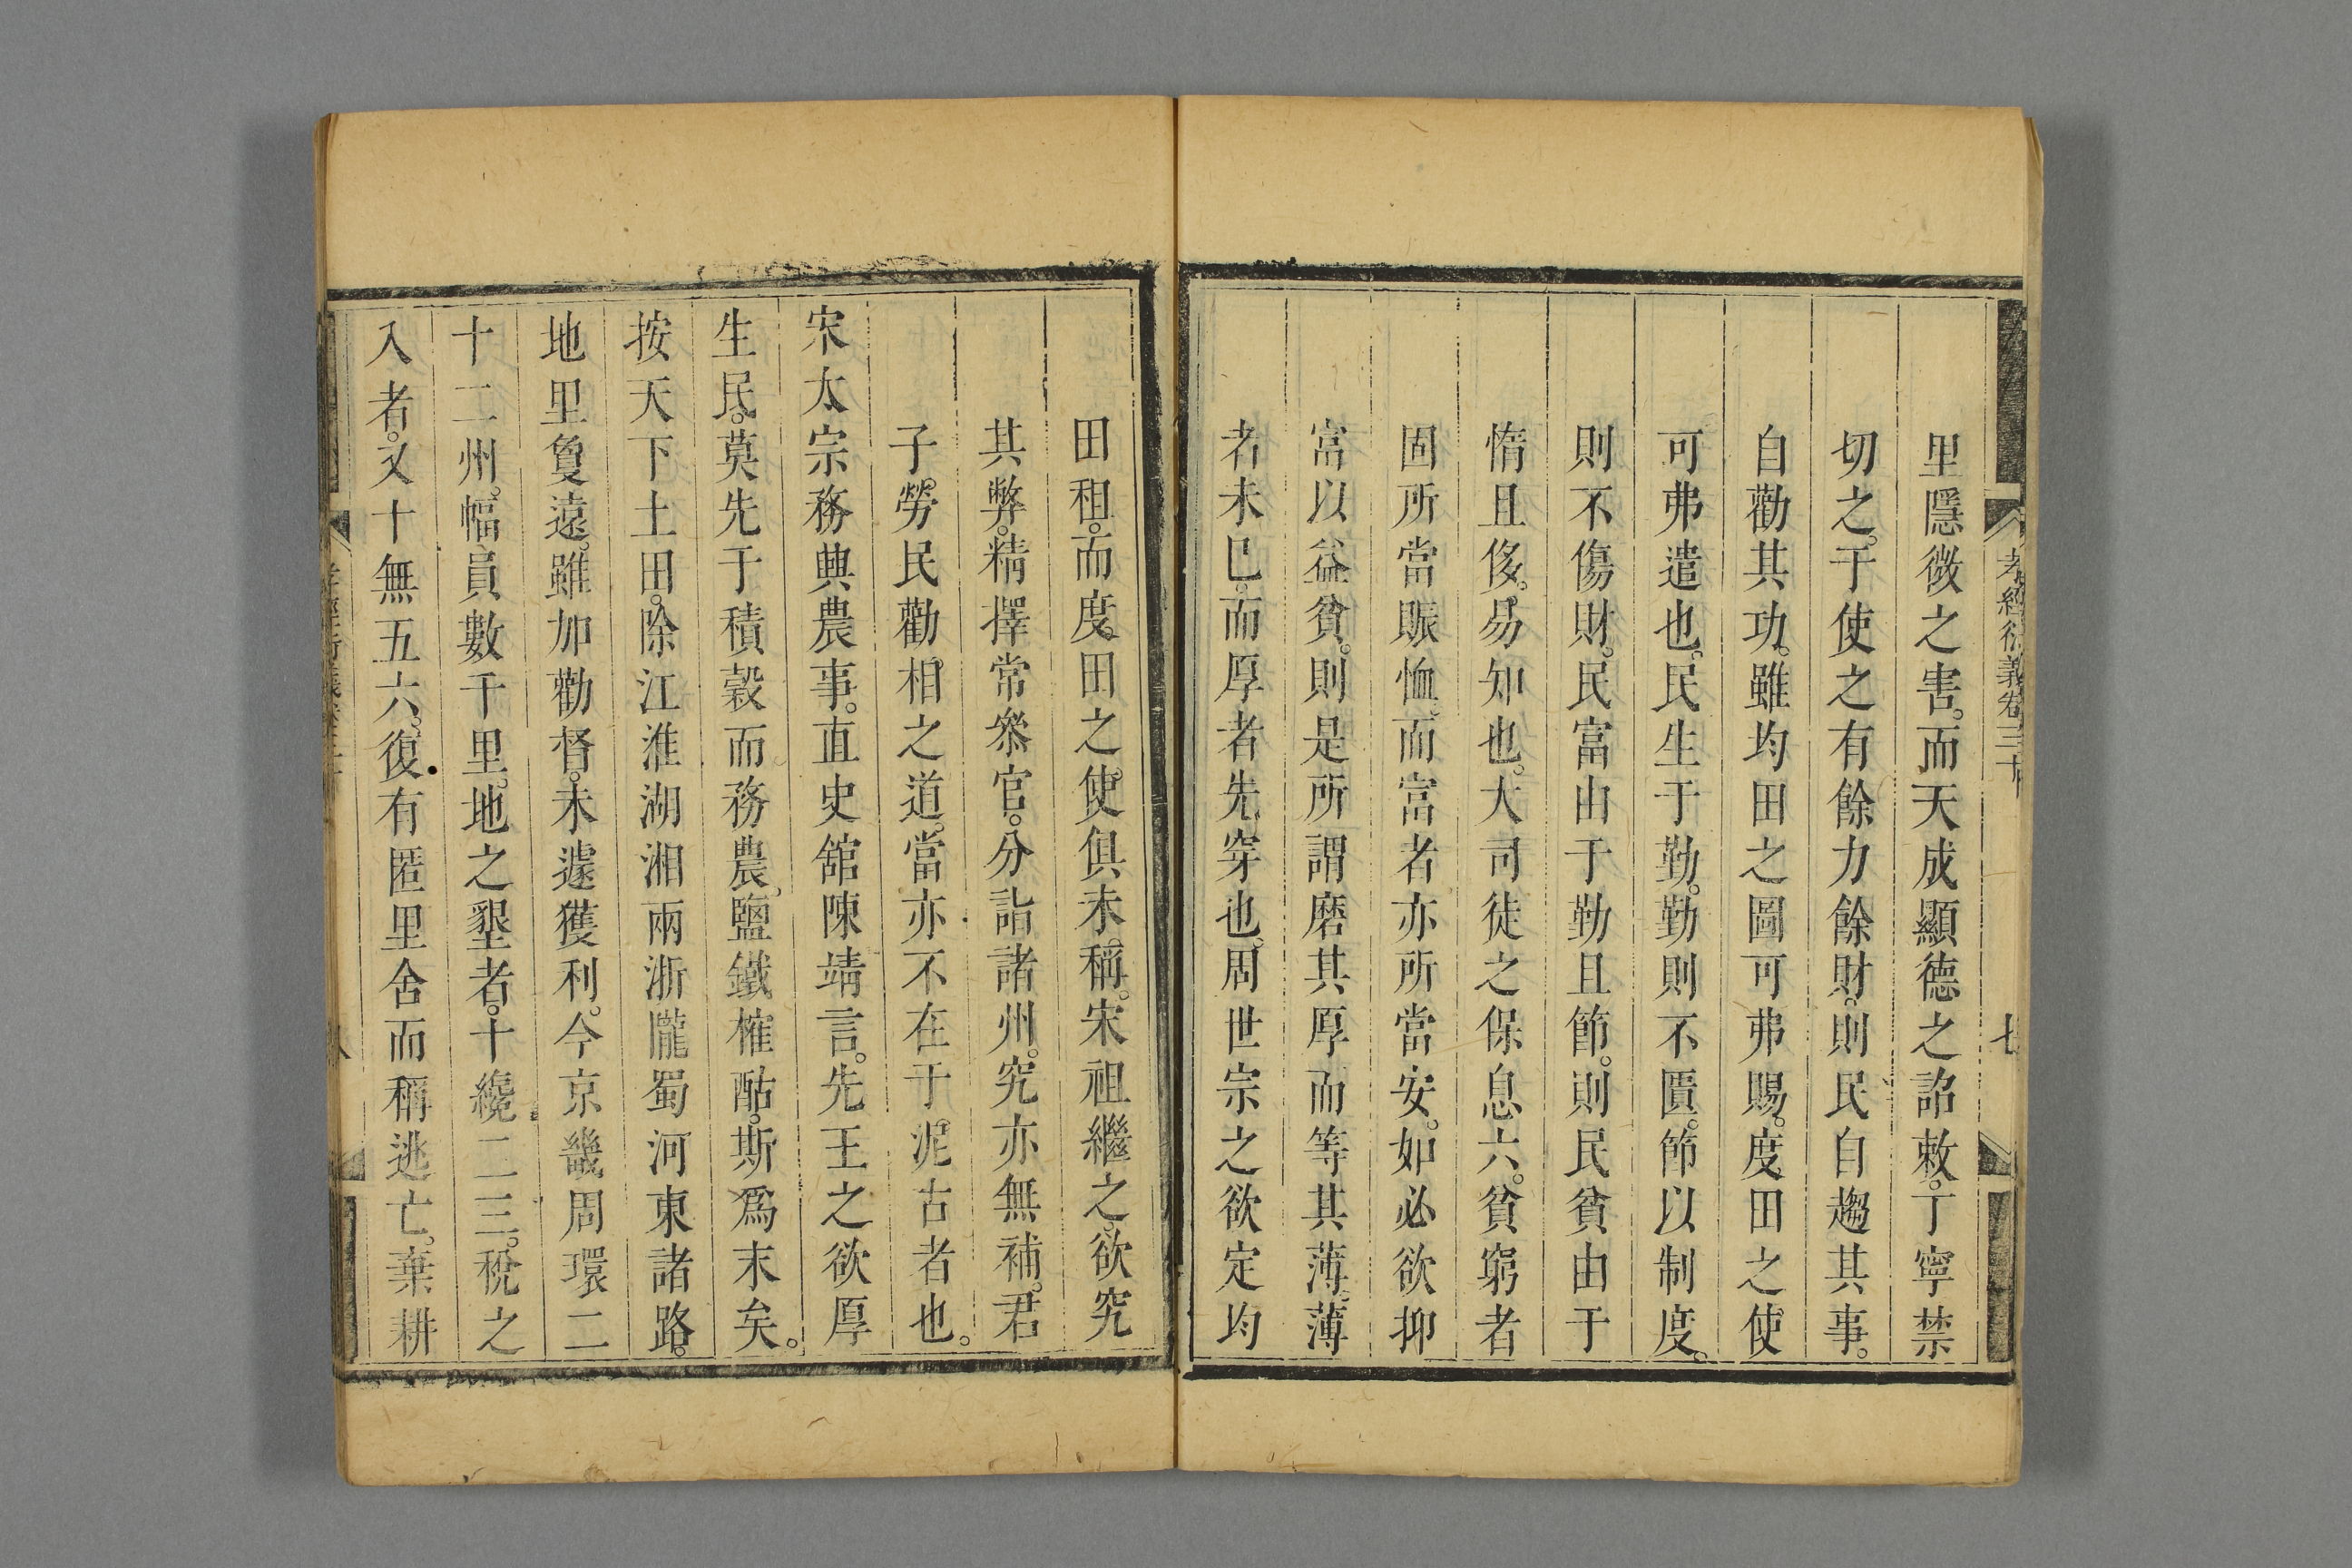 孝經衍義卷三十
七
里隱微之害。而天成顯德之詔敕。丁寧禁
切之。于使之有餘力餘財。則民自趨其事。
自勸其功。雖均田之圖可弗賜。度田之使
可弗遣也。民生于勤。勤則不匱。節以制度。
則不傷財。民富由于勤且節。則民貧由于
惰且侈。易知也。大司徒之保息六。貧窮者
固所當賑恤。而富者亦所當安。如必欲抑
富以益貧。則是所謂磨其厚而等其薄。薄
者未巳。而厚者先穿也。周世宗之欲定均
田租。而度田之使。俱未稱。宋祖繼之。欲究
其弊。精擇常叅官。分詣諸州。究亦無補。君
子。勞民勸相之道。當亦不在于。泥古者也。
宋太宗務興農事。直史舘陳靖言。先王之欲厚
生民。莫先于積穀而務農。鹽鐵榷酤。斯爲末矣。
按天下土田。除江淮湖湘兩浙隴蜀河東諸路。
地里夐遠。雖加勸督。未遽獲利。今京畿周環二
十二州。幅員數千里。地之墾者。十纔二三。稅之
入者。又十無五六。復有匿里舍而稱逃亡。棄耕
八